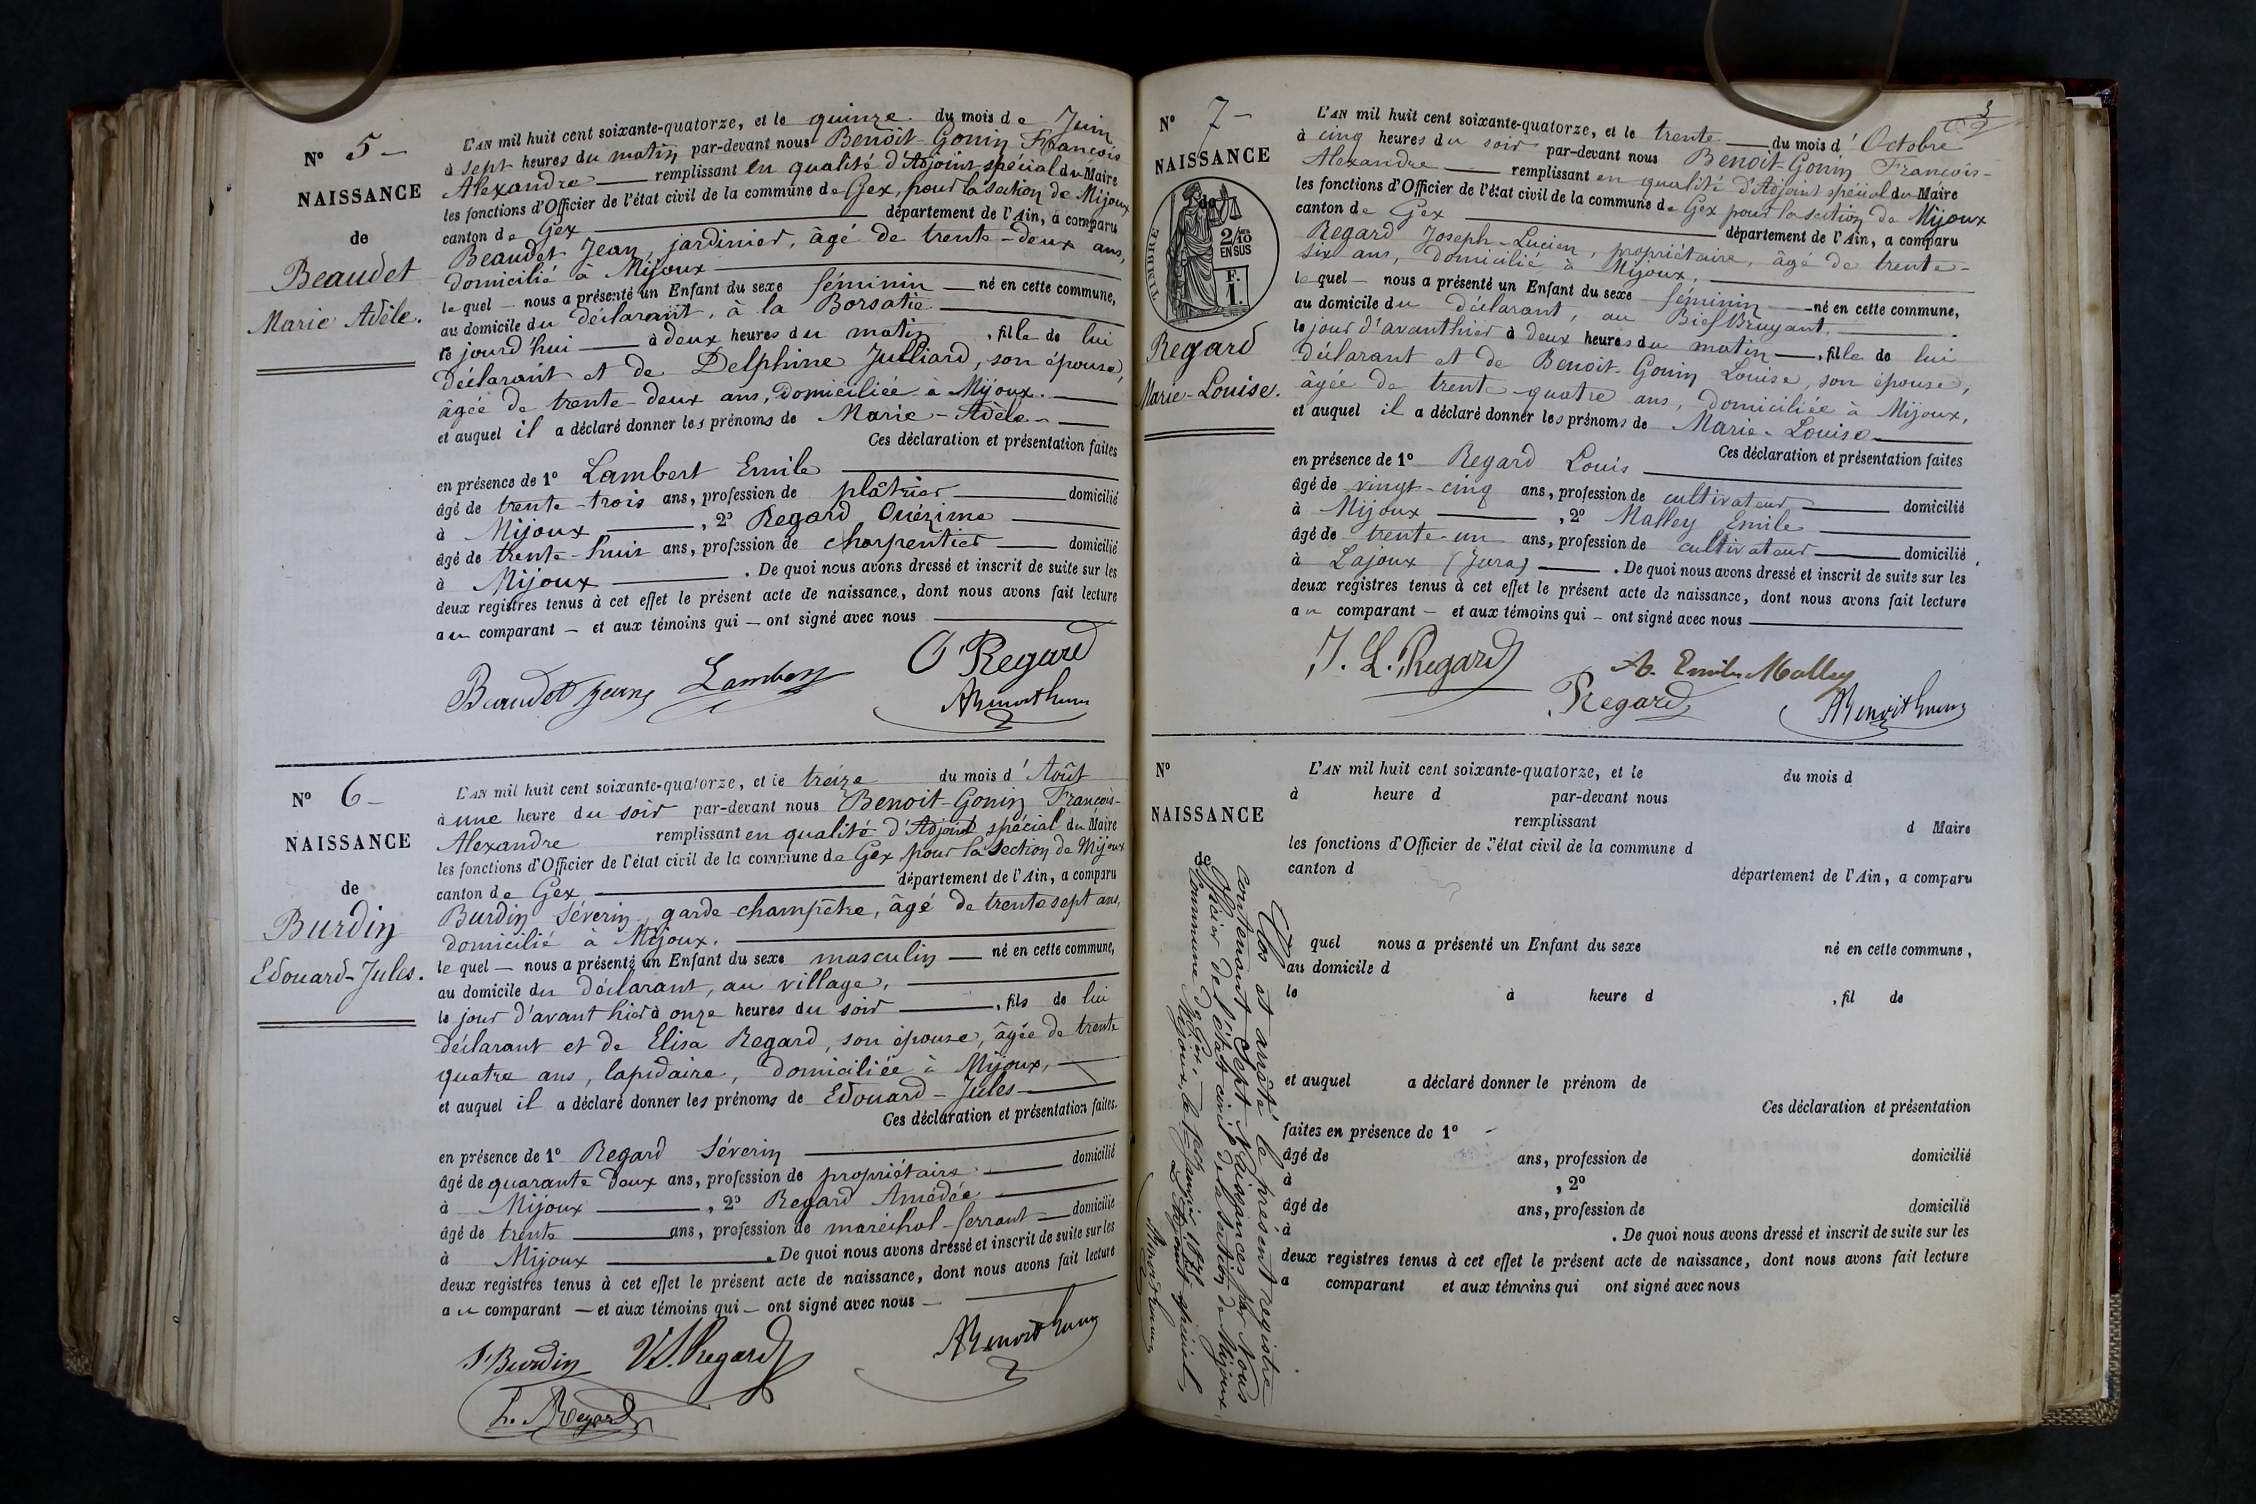 N° 5 -
NAISSANCE
de
Beaudet
Marie Adèle.
L'AN mil huit cent soixante-quatorze, et le quinze du mois de Juin
à sept heures du matin par-devant nous Benoit-Gonin François
Alexandre remplissant en qualité d'Adjoint spécial du Maire
les fonctions d'Officier de l'état civil de la commune de Gex, pour la section de Mijoux
canton de Gex département de l'Ain, a comparu
Beaudet Jean, jardinier, âgé de trente-deux ans,
domicilié à Mijoux
lequel nous a présenté un Enfant du sexe féminin né en cette commune,
au domicile du déclarant, à la Borsatie
le jourd'hui à deux heures du matin, fille de lui
déclarant et de Delphine Julliard, son épouse,
âgée de trente-deux ans, domiciliée à Mijoux.
et auquel il a déclaré donner les prénoms de Marie-Adèle
Ces déclaration et présentation faites
en présence de 1° Lambert Emile
âgé de trente-trois ans, profession de plâtrier domicilié
à Mijoux, 2° Regard Onézime
âgé de trente-huit ans, profession de charpentier domicilié
à Mijoux. De quoi nous avons dressé et inscrit de suite sur les
deux registres tenus à cet effet le présent acte de naissance, dont nous avons fait lecture
au comparant — et aux témoins qui — ont signé avec nous
Beaudet Jean Lambert O. Regard
ABenoit Gonin
N° 6 -
NAISSANCE
de
Burdin
Edouard-Jules.
L'AN mil huit cent soixante-quatorze, et le treize du mois d'Août
à une heure du soir par-devant nous Benoit-Gonin François-
Alexandre remplissant en qualité d'Adjoint spécial du Maire
les fonctions d'Officier de l'état civil de la commune de Gex pour la section de Mijoux
canton de Gex département de l'Ain, a comparu
Burdin Séverin, garde-champêtre, âgé de trente sept ans,
domicilié à Mijoux.
lequel — nous a présenté un Enfant du sexe masculin né en cette commune,
au domicile du déclarant, au village,
le jour d'avant hier à onze heures du soir, fils de lui
déclarant et de Elisa Regard, son épouse, âgée de trente
quatre ans, lapidaire, domiciliée à Mijoux,
et auquel il a déclaré donner les prénoms de Edouard-Jules
Ces déclaration et présentation faites
en présence de 1° Regard Séverin
âgé de quarante deux ans, profession de propriétaire domicilié
à Mijoux, 2° Regard Amédée
âgé de trente ans, profession de maréchal-ferrant domicilié
à Mijoux. De quoi nous avons dressé et inscrit de suite sur les
deux registres tenus à cet effet le présent acte de naissance, dont nous avons fait lecture
au comparant — et aux témoins qui — ont signé avec nous —
S. Burdin V.S. Regard ABenoit Gonin
Regard
3
N° 7 -
NAISSANCE
de
TIMBRE
2/10 EN SUS
F. 1.
Regard
Marie-Louise.
L'AN mil huit cent soixante-quatorze, et le trente du mois d'Octobre
à cinq heures du soir par-devant nous Benoit-Gonin François-
Alexandre remplissant en qualité d'Adjoint spécial du Maire
les fonctions d'Officier de l'état civil de la commune de Gex pour la section de Mijoux
canton de Gex département de l'Ain, a comparu
Regard Joseph-Lucien, propriétaire, âgé de trente-
six ans, domicilié à Mijoux,
lequel — nous a présenté un Enfant du sexe féminin né en cette commune,
au domicile du déclarant, au Bief Bruyant.
le jour d'avanthier à deux heures du matin, fille de lui
déclarant et de Benoit-Gonin Louise, son épouse,
âgée de trente-quatre ans, domiciliée à Mijoux,
et auquel il a déclaré donner les prénoms de Marie-Louise
Ces déclaration et présentation faites
en présence de 1° Regard Louis
âgé de vingt-cinq ans, profession de cultivateur domicilié
à Mijoux, 2° Malley Emile
âgé de trente-un ans, profession de cultivateur domicilié
à Lajoux (Jura). De quoi nous avons dressé et inscrit de suite sur les
deux registres tenus à cet effet le présent acte de naissance, dont nous avons fait lecture
au comparant — et aux témoins qui — ont signé avec nous
J. L. Regard A. Emile Malley
Regard ABenoit Gonin
N°
NAISSANCE
de
L'AN mil huit cent soixante-quatorze, et le du mois d
à heure d par-devant nous
remplissant d Maire
les fonctions d'Officier de l'état civil de la commune d
canton d département de l'Ain, a comparu
quel nous a présenté un Enfant du sexe né en cette commune,
au domicile d
le à heure d , fil de
et auquel a déclaré donner le prénom de
Ces déclaration et présentation
faites en présence de 1°
âgé de ans, profession de domicilié
à , 2°
âgé de ans, profession de domicilié
à . De quoi nous avons dressé et inscrit de suite sur les
deux registres tenus à cet effet le présent acte de naissance, dont nous avons fait lecture
a comparant et aux témoins qui ont signé avec nous
Clos et arrêté le présent registre
contenant sept Naissances par Nous
Officier de l'état civil de la section de Mijoux,
Commune de Gex.
Mijoux, le 1er Janvier 1875
L'Adjoint spécial
ABenoit Gonin